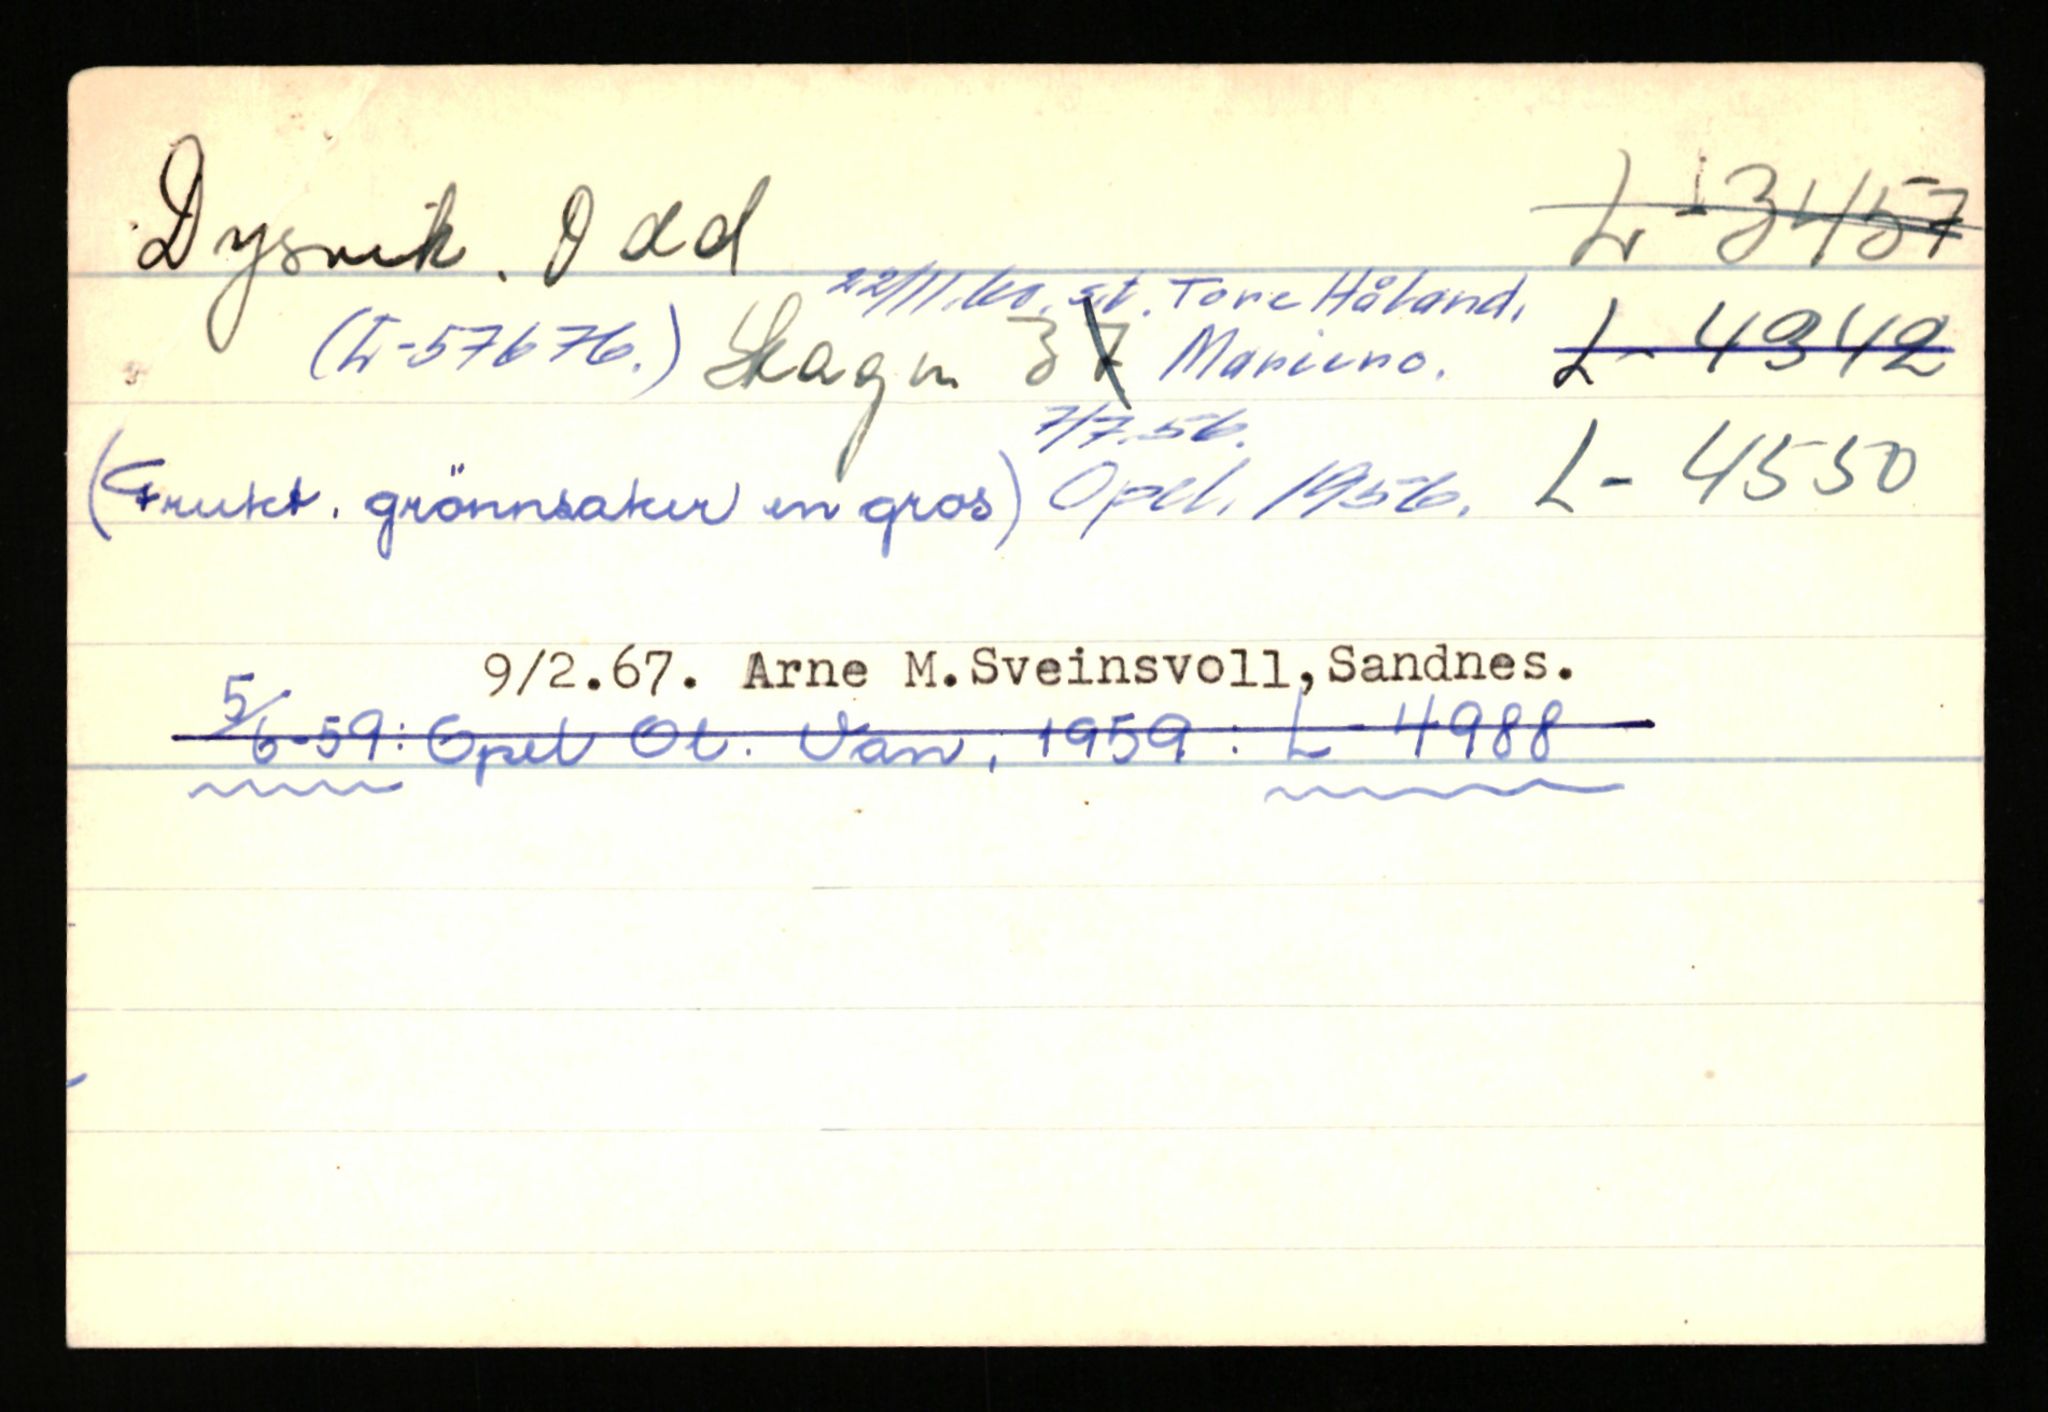 Dysvik. Odd L-3457
22/11.60. st. Tore Håland.
(L-57676.) Skagen 37 Mariero. L-4342
7/7.56.
(Frukt. grönnsaker en gros) Opel. 1956. L-4550
9/2.67. Arne M.Sveinsvoll,Sandnes.
5/6-59: Opel Ol. Van, 1959: L-4988